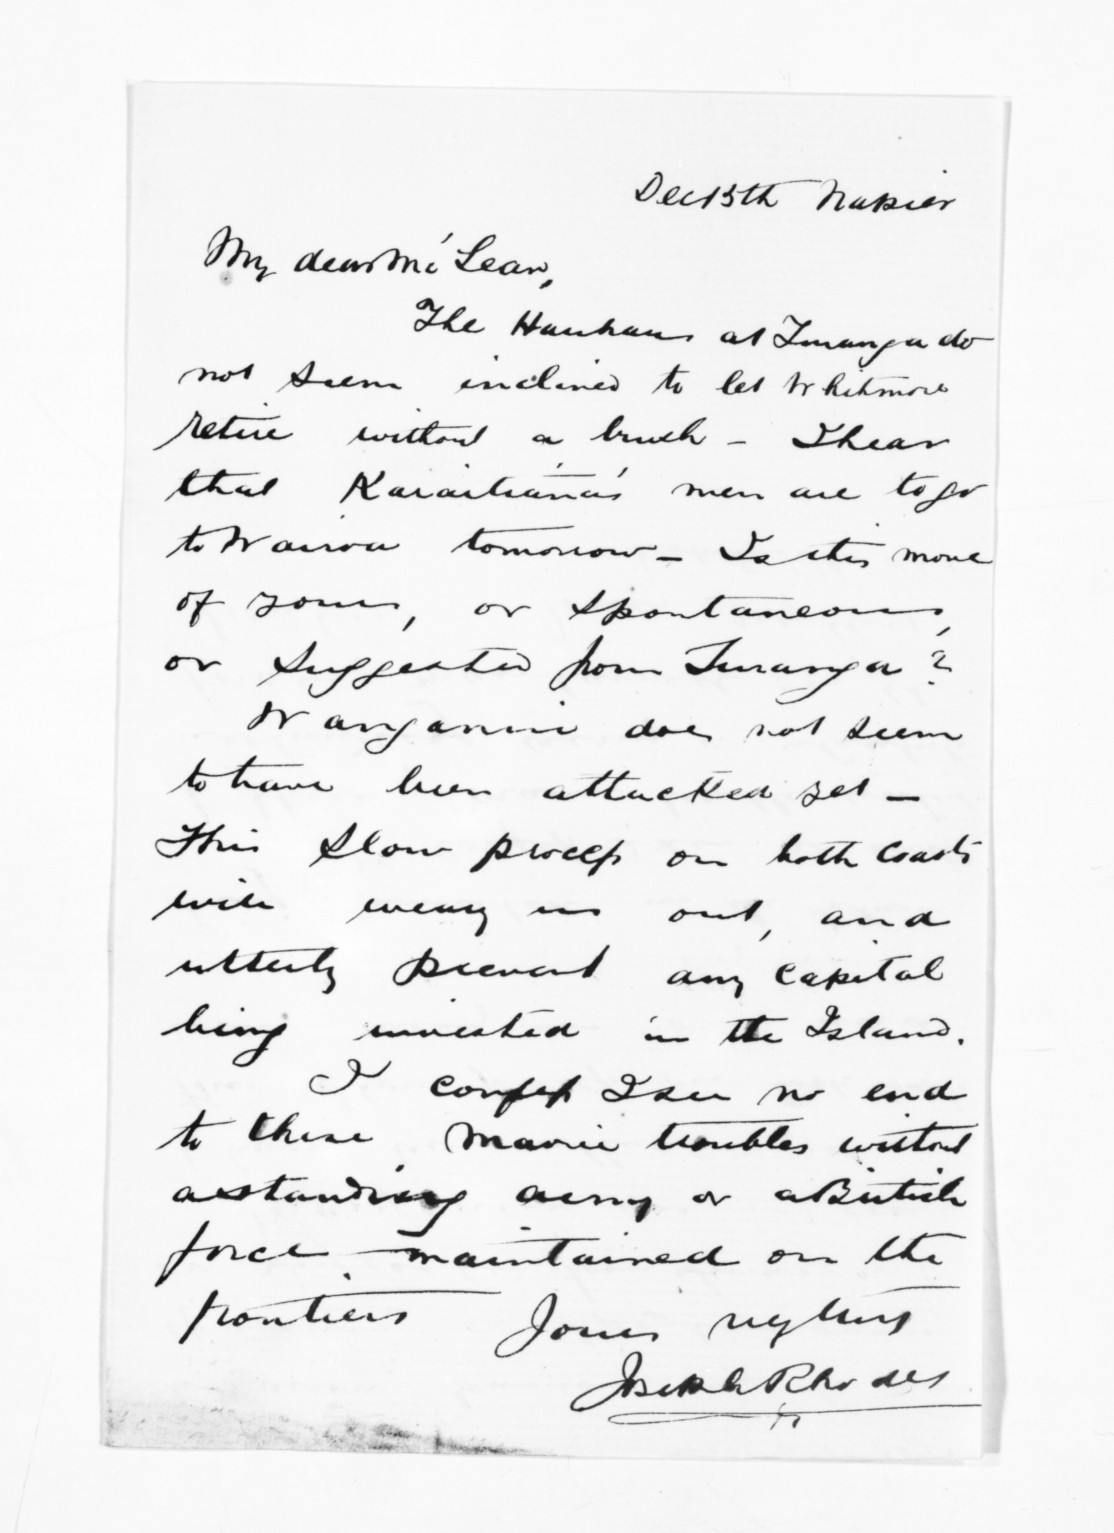 Dec 13th Napier
My dear McLean,
The Hauhaus at Turanga do
not seem inclined to let Whitmore
retire without a brush - I hear
that Karaitiana's men are to go
to Wairoa tomorrow - Is this move
of yours, or spontaneous,
or suggested from Turanga?
Wanganui does not seem
to have been attacked yet -
This slow process on both coasts
will weary us out, and
utterly prevent any capital
being invested in the Island.
I confess I see no end
to these Maorie troubles without
a standing army or a British
force maintained on the
frontiers Yours very truly
Joseph Rhodes